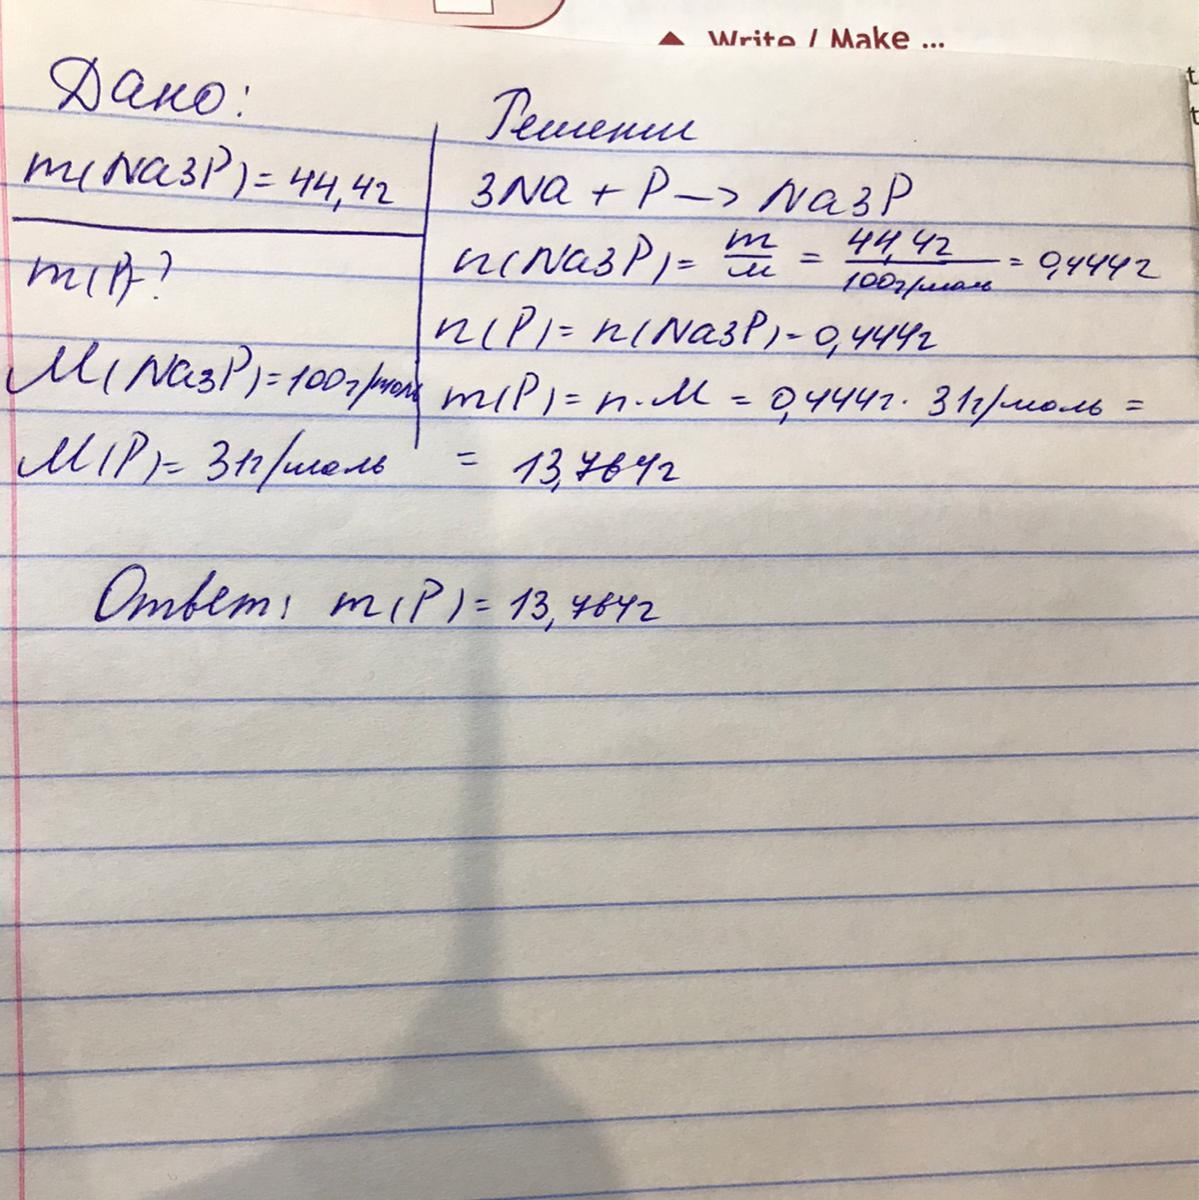 Write / Make ...
Дано:
m(Na3P)=44,4г
m(P)-?
M(Na3P)=100г/моль
M(P)=31г/моль
Решение
3Na + P —> Na3P
n(Na3P)= m/M = 44,4г/100г/моль = 0,444г
n(P)= n(Na3P)-0,444г
m(P)= n·M = 0,444г· 31г/моль =
= 13,764г
Ответ: m(P)= 13,764г